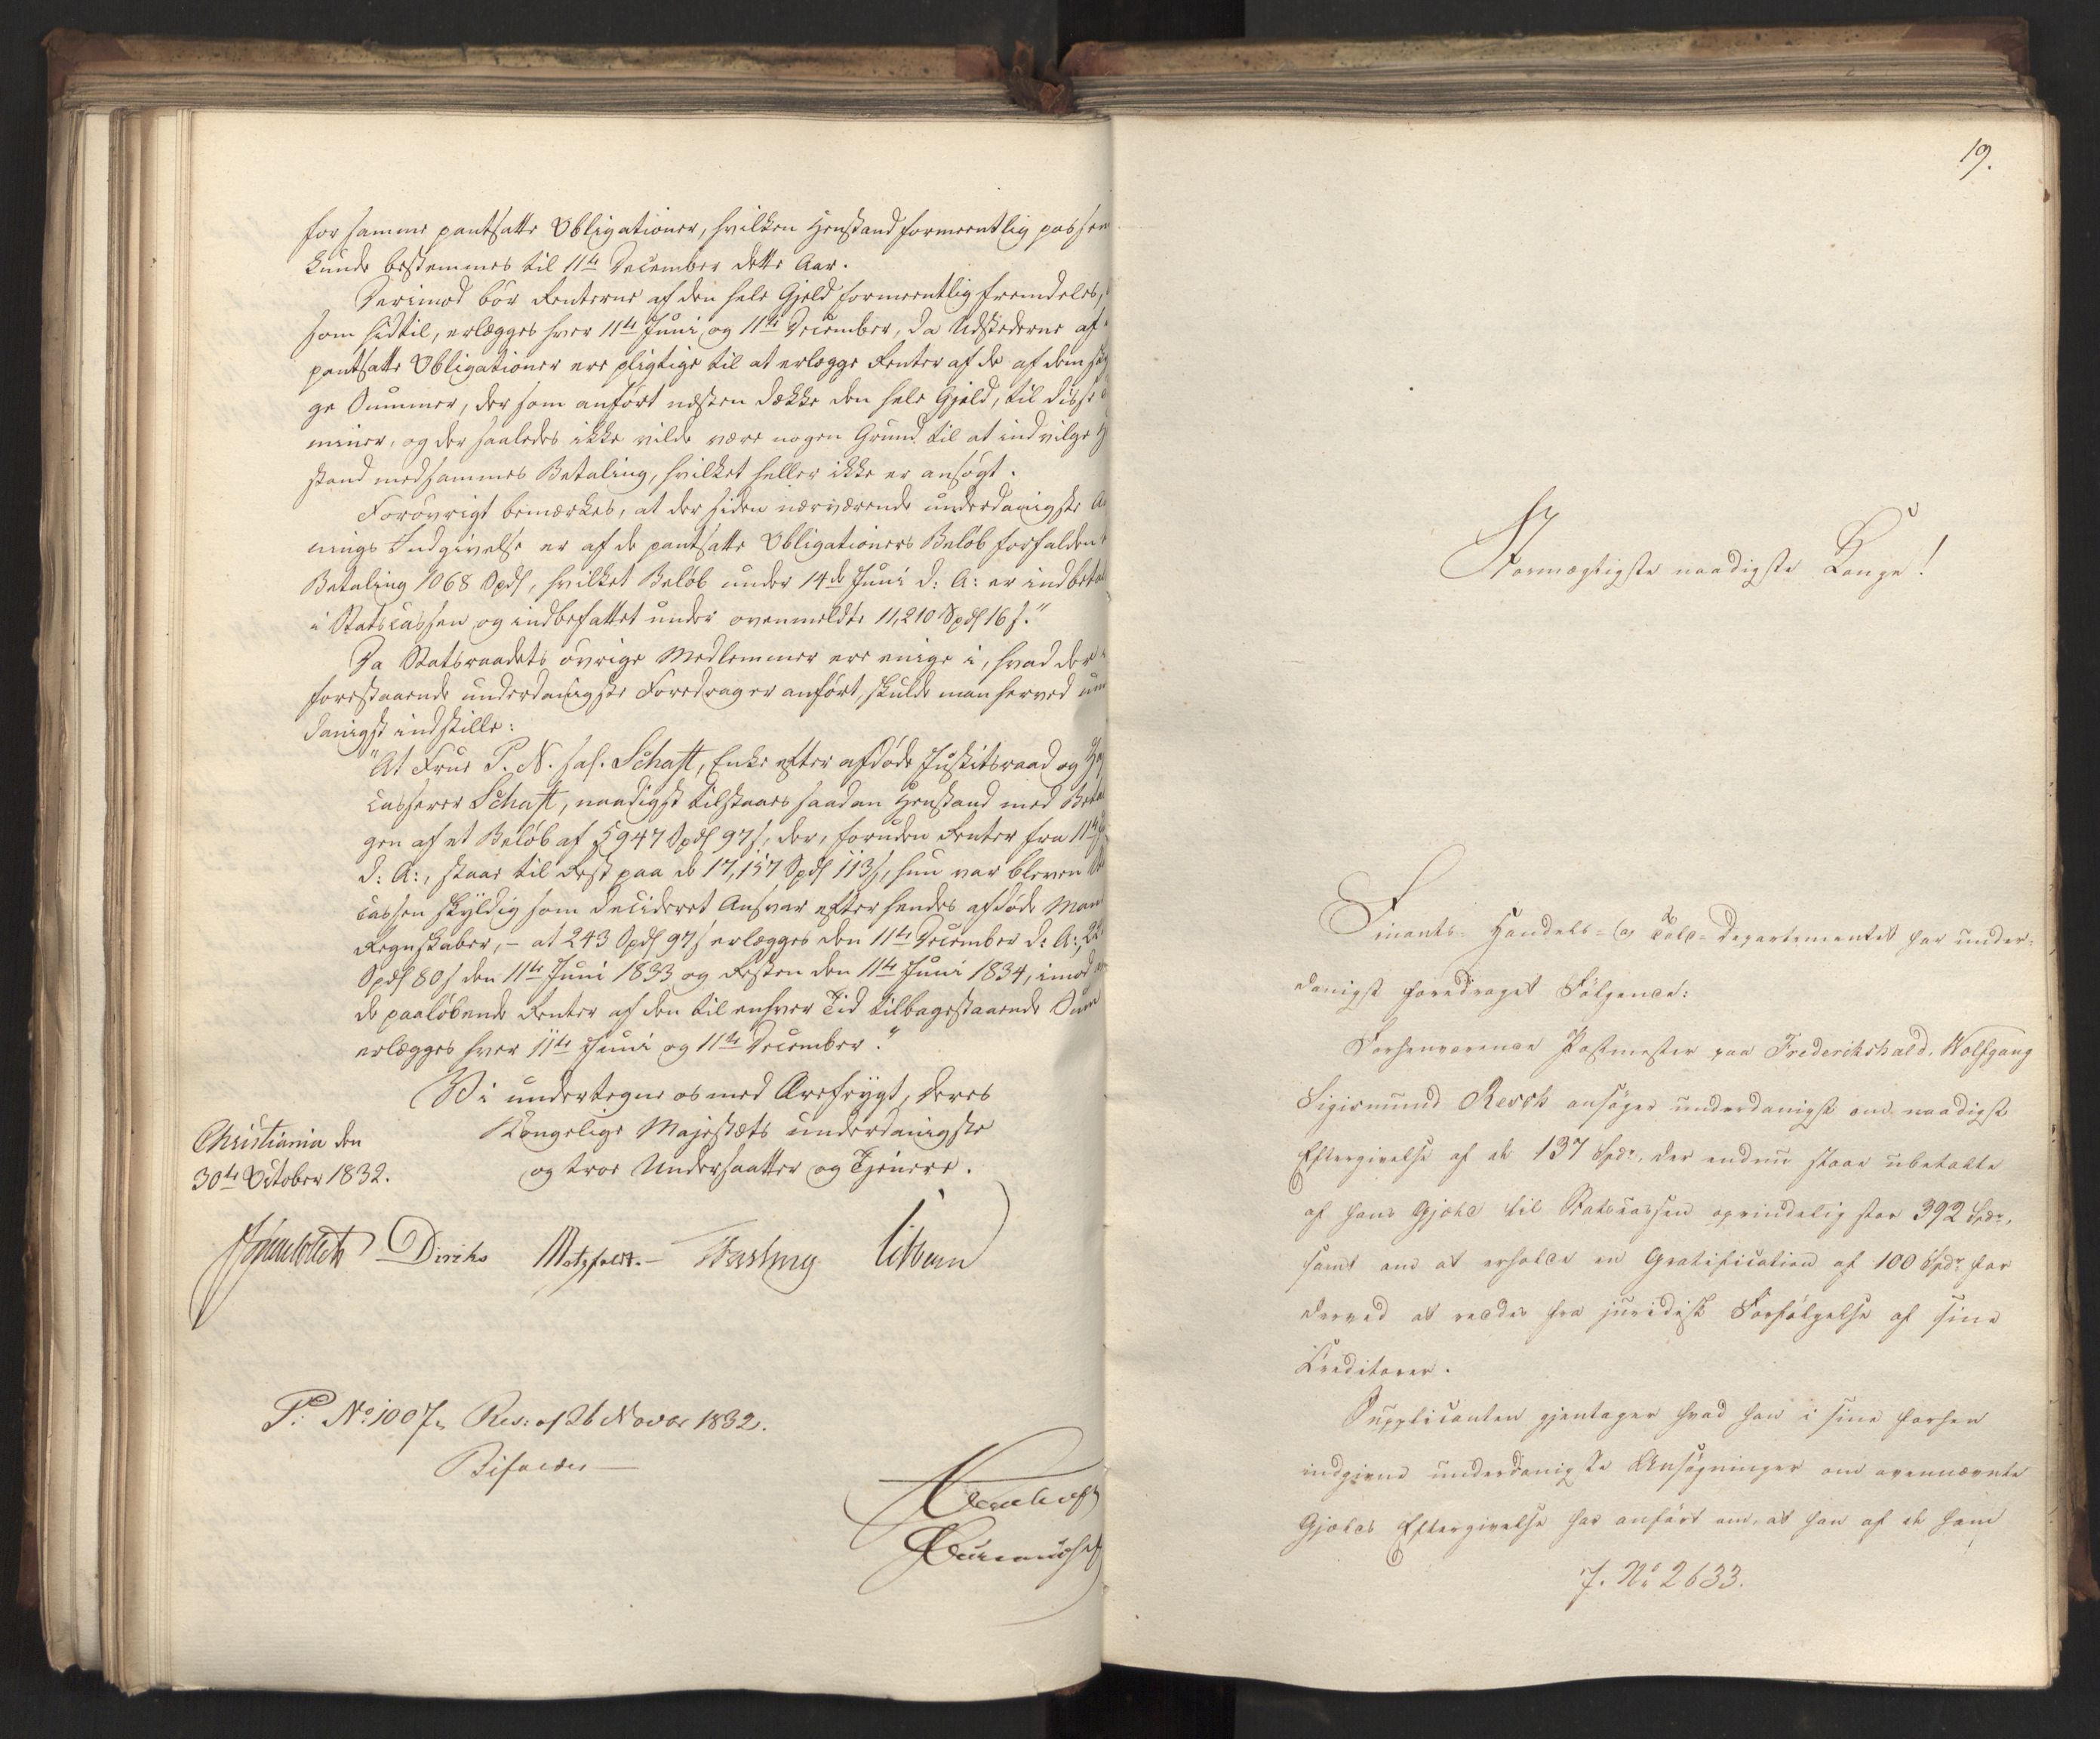 for samme pantsatte Obligationer, hvilken Henstand formeentlig passen
kunde bestemmes til 11te December dette Aar.
Derimod bör Renterne af den hele Gjeld formeentlig fremdeles,
som hidtil, erlægges hver 11te Juni og 11te December, da Udstederne af
pantsatte Obligationer ere pligtige til at erlægge Renter af de af dem
ge Summer, der som anfört næsten dække den hele Gjeld, til disse
miner, og der saaledes ikke vilde være nogen Grund til at indvilge
stand med sammes Betaling, hvilket heller ikke er ansögt.
Forövrigt bemærkes, at der siden nærværende underdanigste
nings Indgivelse er af de pantsatte Obligationers Belöb forfalden
Betaling 1068 Spd, hvilket Belöb under 14de Juni d: A: er indbeta
i Statscassen og indbefattet under ovenmeldte 11,210 Spd 16 s."
Da Statsraadets övrige Medlemmer ere enige i, hvad der
forestaaende underdanigste Foredrag er anfört, skulde man herved un
danigst indstille:
"At Frue P. N. sal. Schaft, Enke efter afdöde Justitsraad og
casserer Schaft, naadigst tilstaaes saadan Henstand med Beta
gen af et Belöb af 5947 Spd 97 s, der, foruden Renter fra 11te
d: A:, staae til Rest paa de 17,157 Spd 113 s, hun var bleven
cassen skyldig som decideret Ansvar efter hendes afdöde Man
Regnskaber, – at 243 Spd 97 s erlægges den 11te December d: A:,
Spd 80 s den 11te Juni 1833 og Resten den 11te Juni 1834, imod
de paalöbende Renter af den til enhver Tid tilbagestaaende Sum
erlægges hver 11te Juni og 11te December."
Vi undertegne os med Ærefrygt, Deres
Kongelige Majestæts underdanigste
og troe Undersaatter og Tjenere.
Christiania den
30te October 1832.
Diriks Motzfeldt. – Fasting
P: No 1007, Res: af 26 Novbr 1832.
Bifaldes –
19.
Stormægtigste naadigste Konge!
Finants- Handels- og Told-Departementet har under-
danigst foredraget Fölgende:
Forhenværende Postmester paa Frederikshald, Wolfgang
Sigismund Resch ansöger underdanigst om naadigst
Eftergivelse af de 137 Spdr, der endnu staae ubetalte
af hans Gjeld til Statscassen oprindelig stor 392 Spdr,
samt om at erholde en Gratification af 100 Spdr for
derved at reddes fra juridisk Forfölgelse af sine
Creditorer.
Supplicanten gjentager hvad han i sine forhen
indgivne underdanigste Ansögninger om ovennævnte
Gjelds Eftergivelse har anfört om, at han af de ham
J. No 2633.